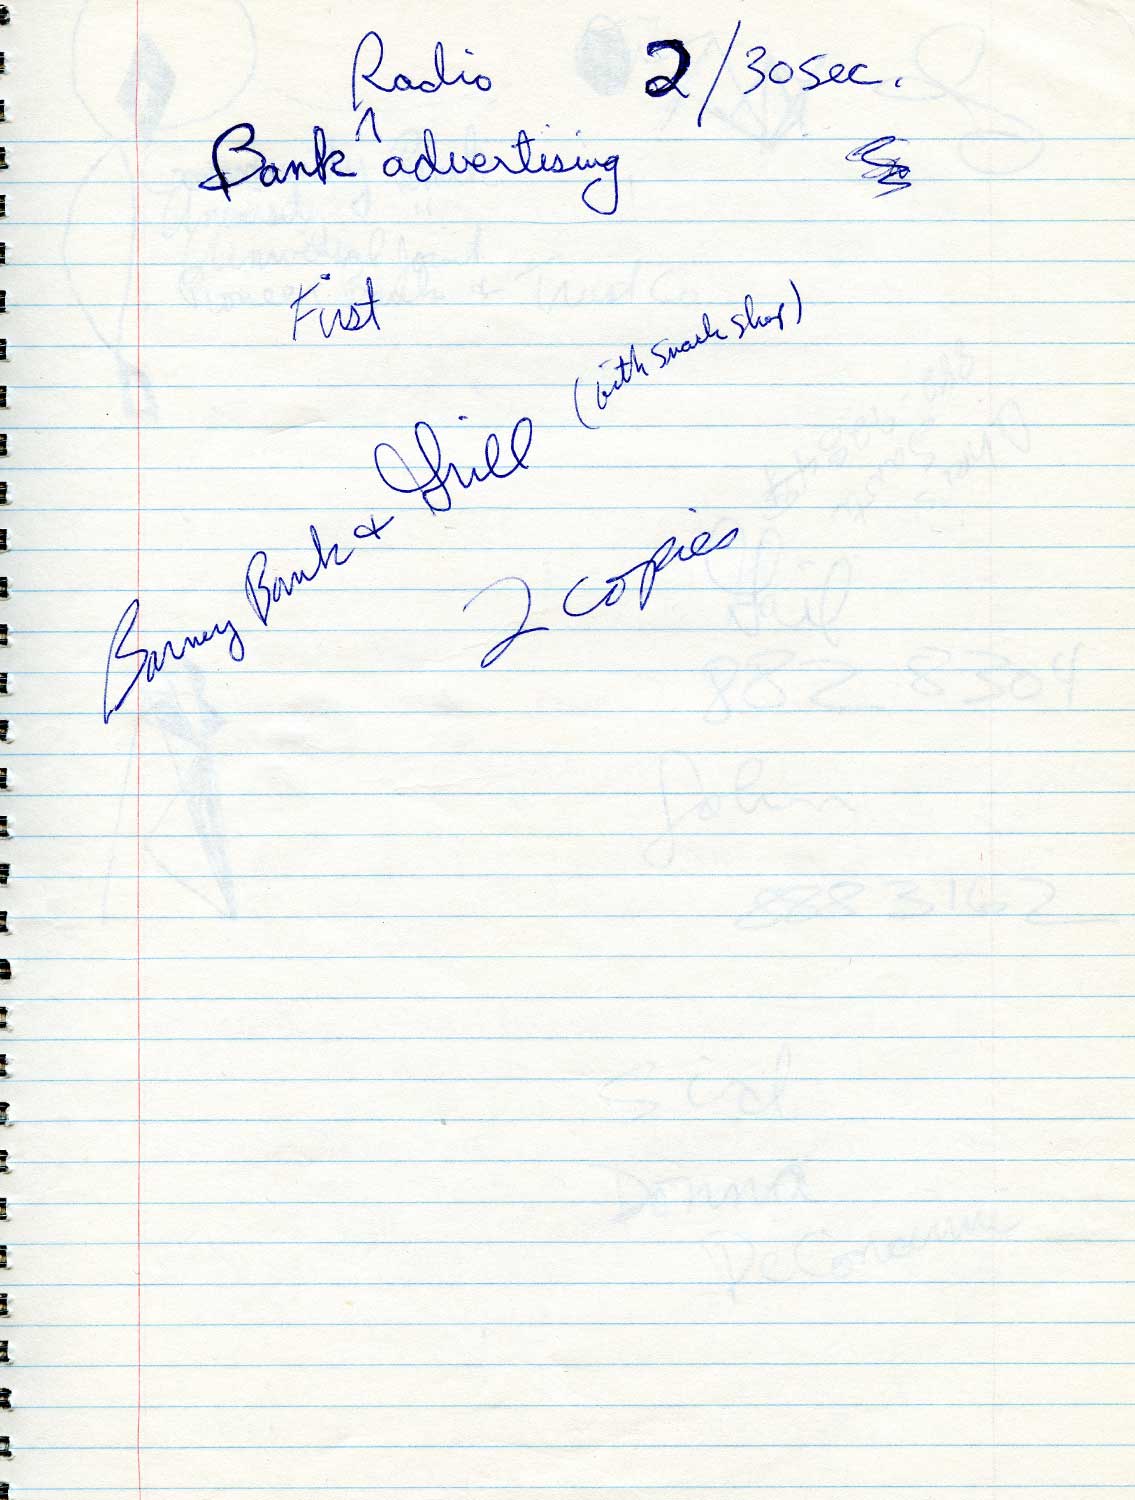 Radio 2/30 sec.
Bank ^ advertising
First
Barney Bank & Grill (with snack shop)
2 copies